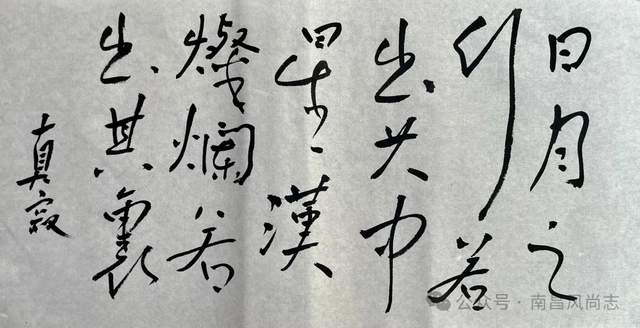 日月之
行若
出其中
星漢
燦爛若
出其裏
真寂
公众号·南昌风尚志